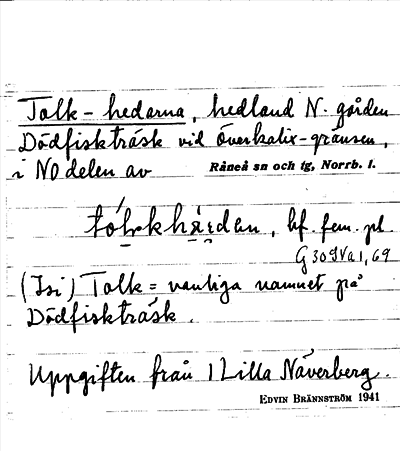 Tolk-hedarna, hedland N. gården
Dödfiskträsk vid Överkalix-gränsen,
i NO delen av Råneå sn och tg, Norrb. l.
bf. fem. pl.
69
(Isi) Tolk = vanliga namnet på
Dödfiskträsk.
Uppgiften från 1 Lilla Näverberg.
EDVIN BRÄNNSTRÖM 1941